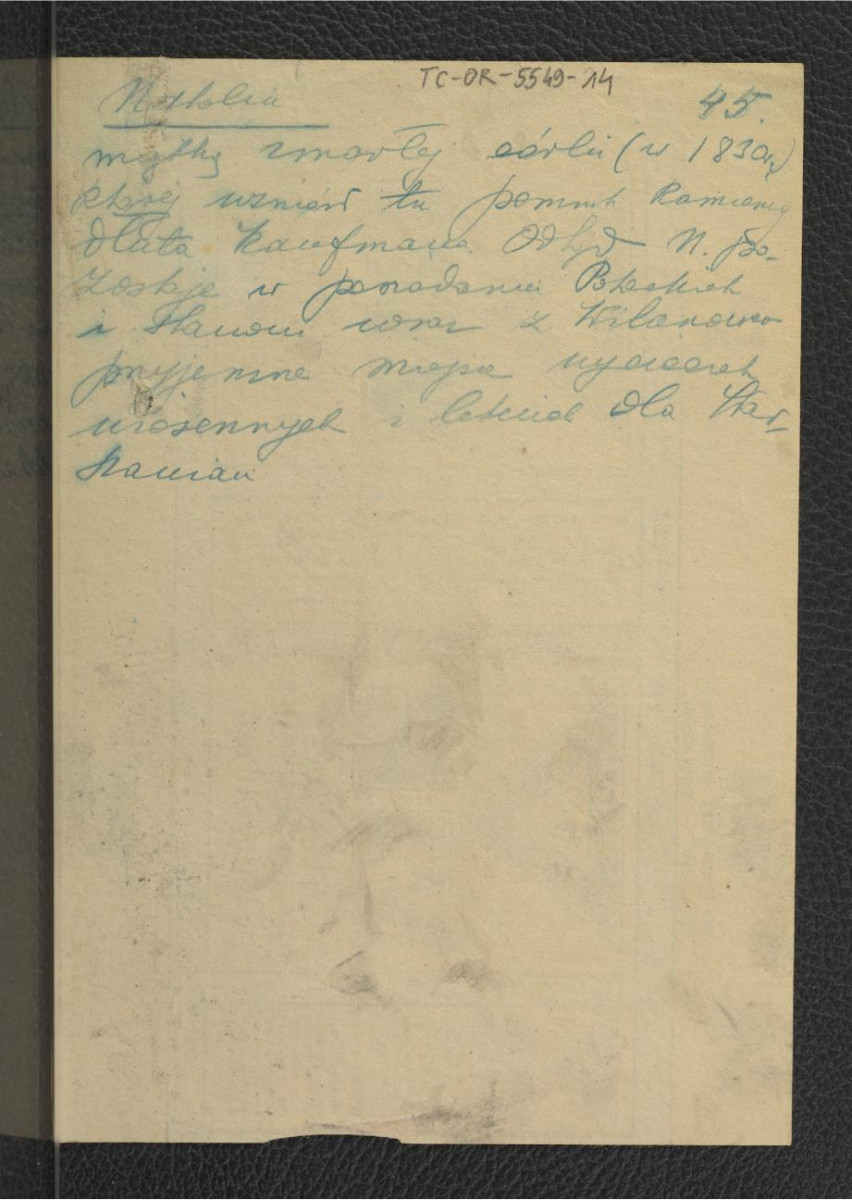 TC-OR-5549-14
45.
Natholin
zmarłej córki (w 1830r)
której wzniósł tu pomnik kamienny
dłuta Kaufmana. Odtąd N. po-
zostaje w posiadaniu Potockich
i stanowi wraz z Wilanowem
przyjemne miejsce wycieczek
wiosennych i letnich dla War-
szawian